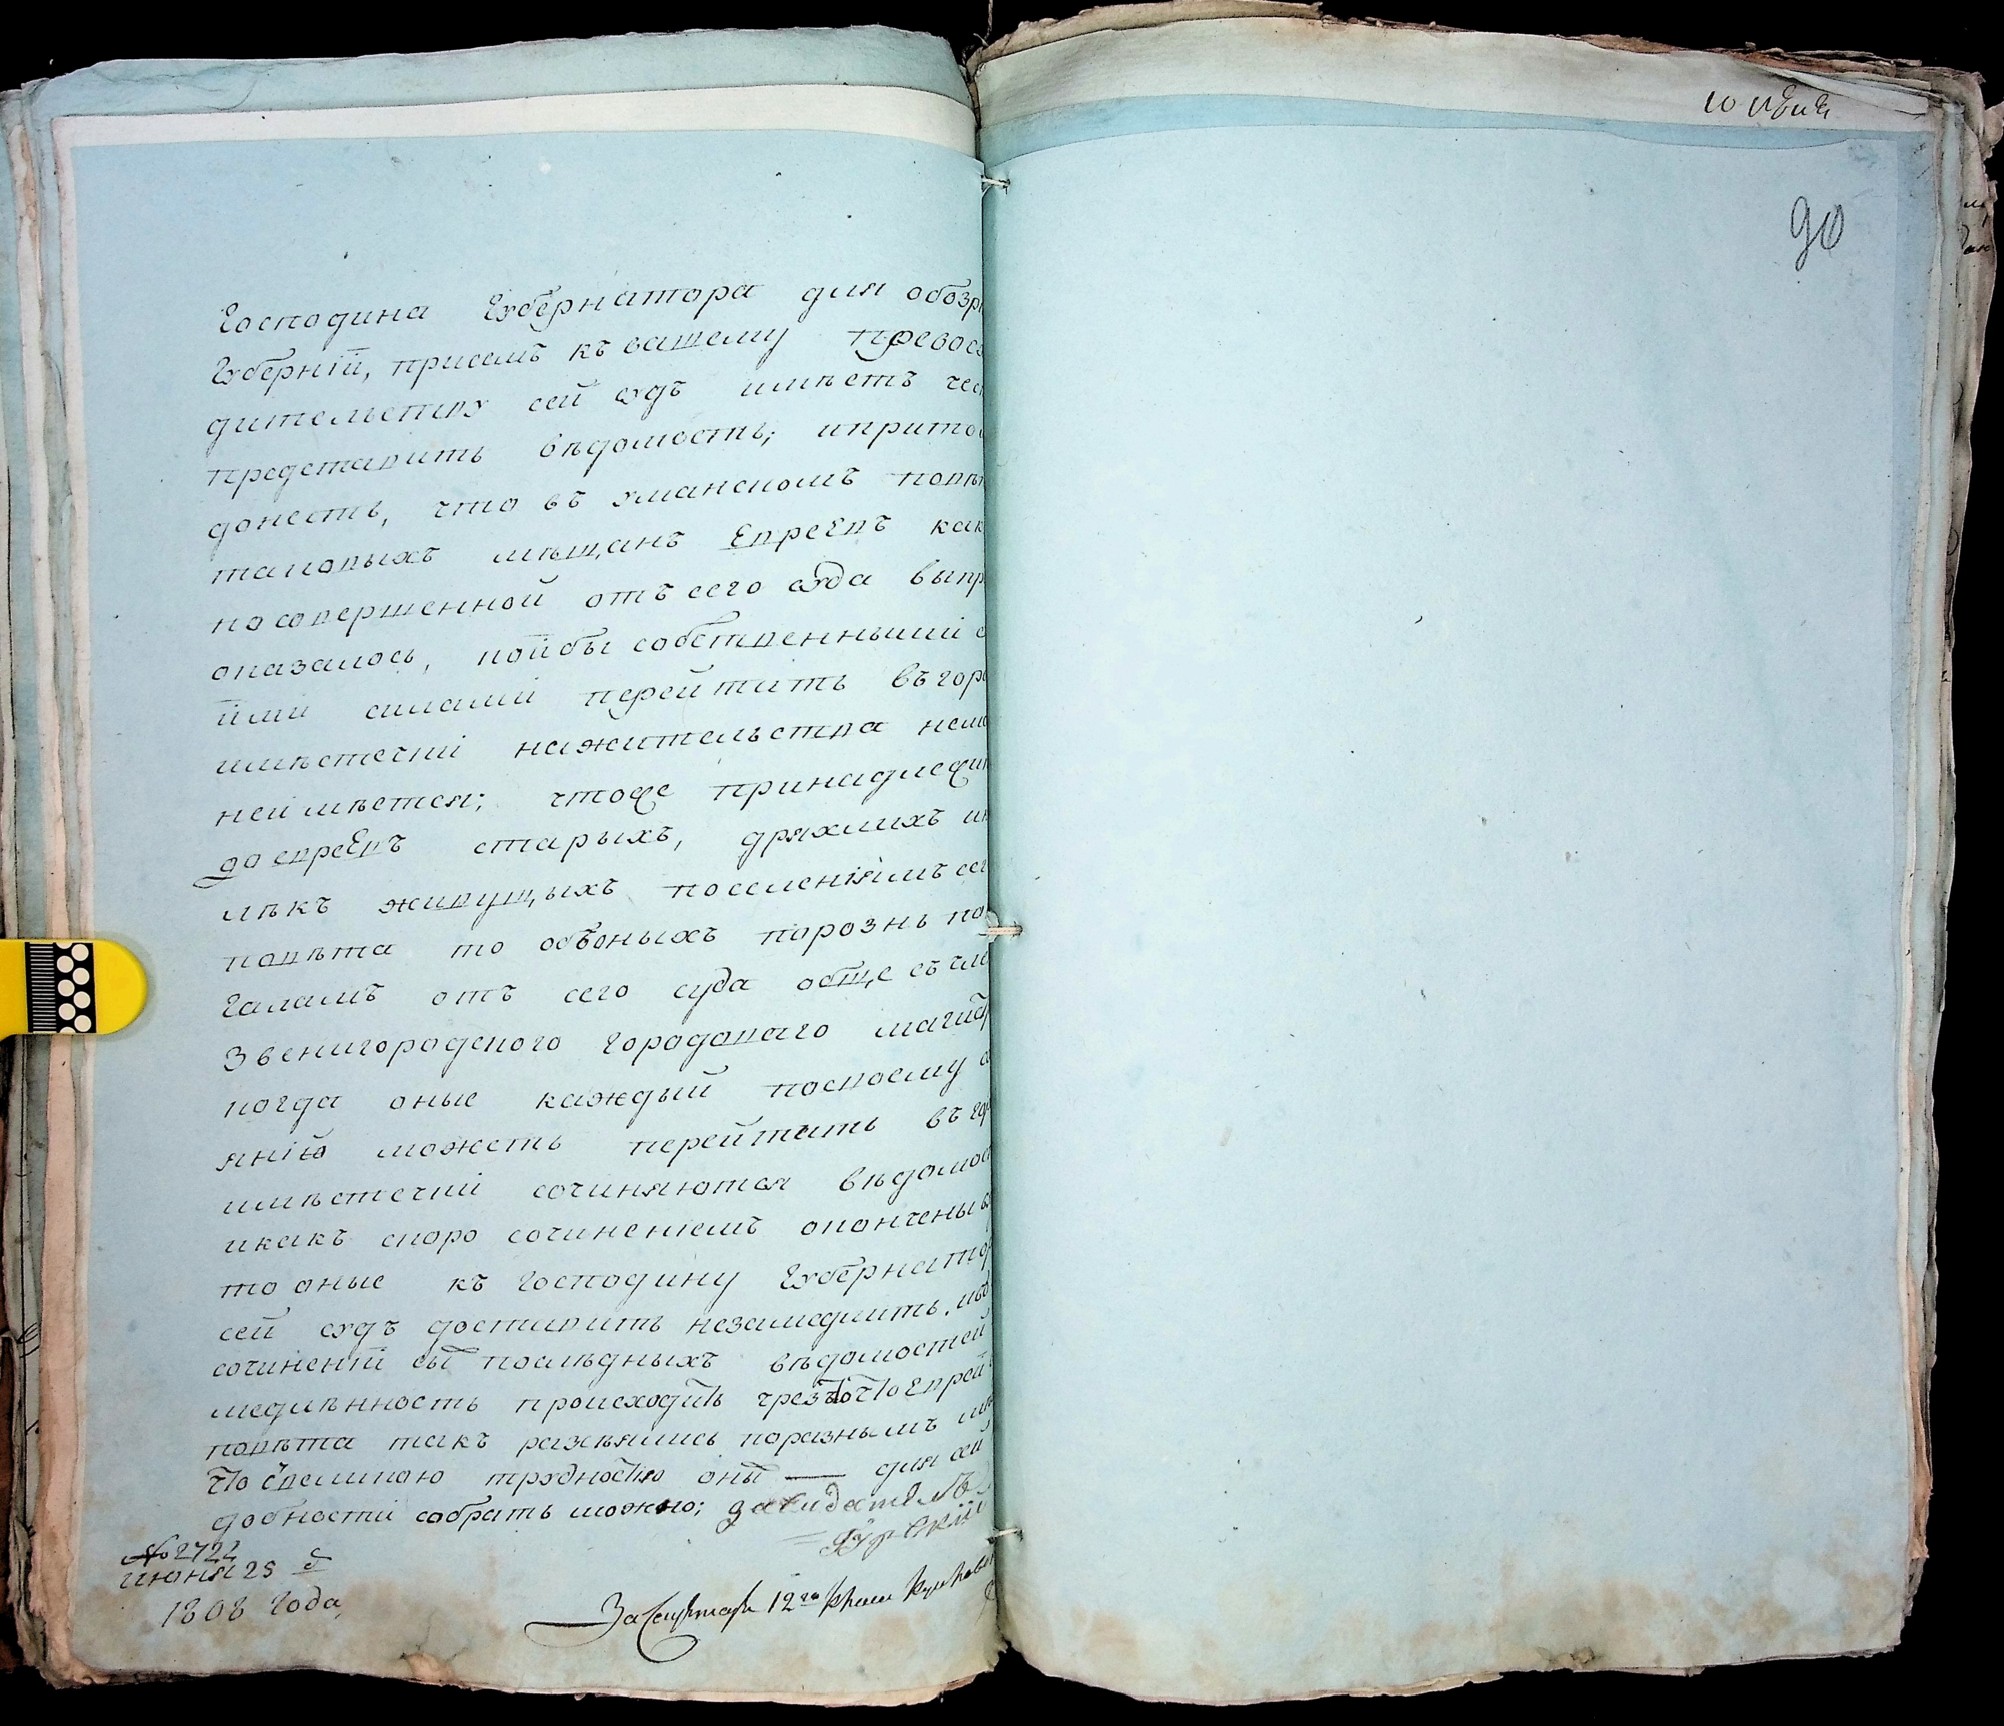 Господина Губернатора для обозр
Губерній, приемъ къ вашему превосх
дительству сей судъ имѣетъ чес
представить вѣдомость; иприто
донесть, что въ Уманскомъ повѣ
таковыхъ мѣщанъ Евреевъ как
по совершенной отъ сего суда выпр
оказалось, коибы собственными с
ими силами перейтить въ гор
имѣстечки нажительства нем
неимѣется; чтоже принадлежи
до евреевъ старыхъ, дряхлихъ ик
лѣкъ живущыхъ поселеніямъ сег
повѣта то обоныхъ порознь по
галамъ отъ сего суда обще съ чле
Звенигородского городоваго магис
когда оные каждый посвоему со
янію можетъ перейтить въ гор
имѣстечки сочиняются вѣдомос
икакъ скоро сочиненіемъ окончены б
то оные къ Господину Губернатор
сей судъ доставить незамедлить,
сочиненіи сы послѣдныхъ вѣдомостей
медлѣнность происходитъ чрезъ то что Еврей
повѣта такъ разсѣялись поразнымъ мѣ
что свеликою трудностію оны — для сей
добности собрать можно; засидатель
№ 2722
июня 25 д
1808 Года
За Секретаря 12го класса
ю цвик
90